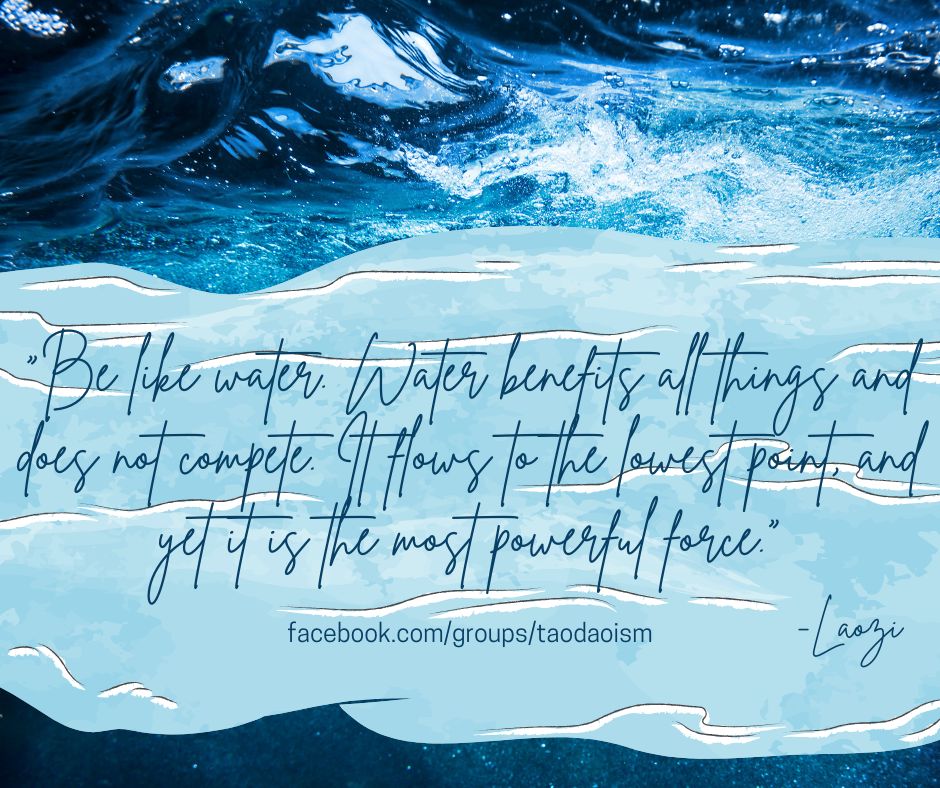 "Be like water. Water benefits all things and
does not compete. It flows to the lowest point, and
yet it is the most powerful force."
facebook.com/groups/taodaoism
-Laozi